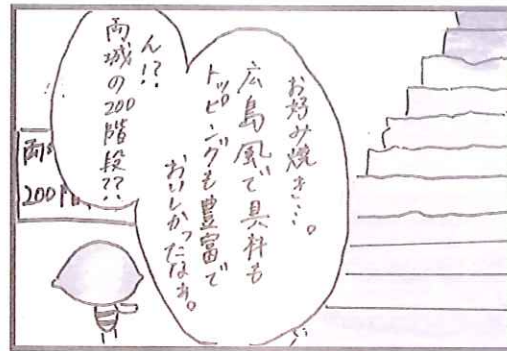 お好み焼き…。
広島風で具料も
トッピングも豊富で
おいしかったなぁ。
ん!?
両城の200階段??
両
200階